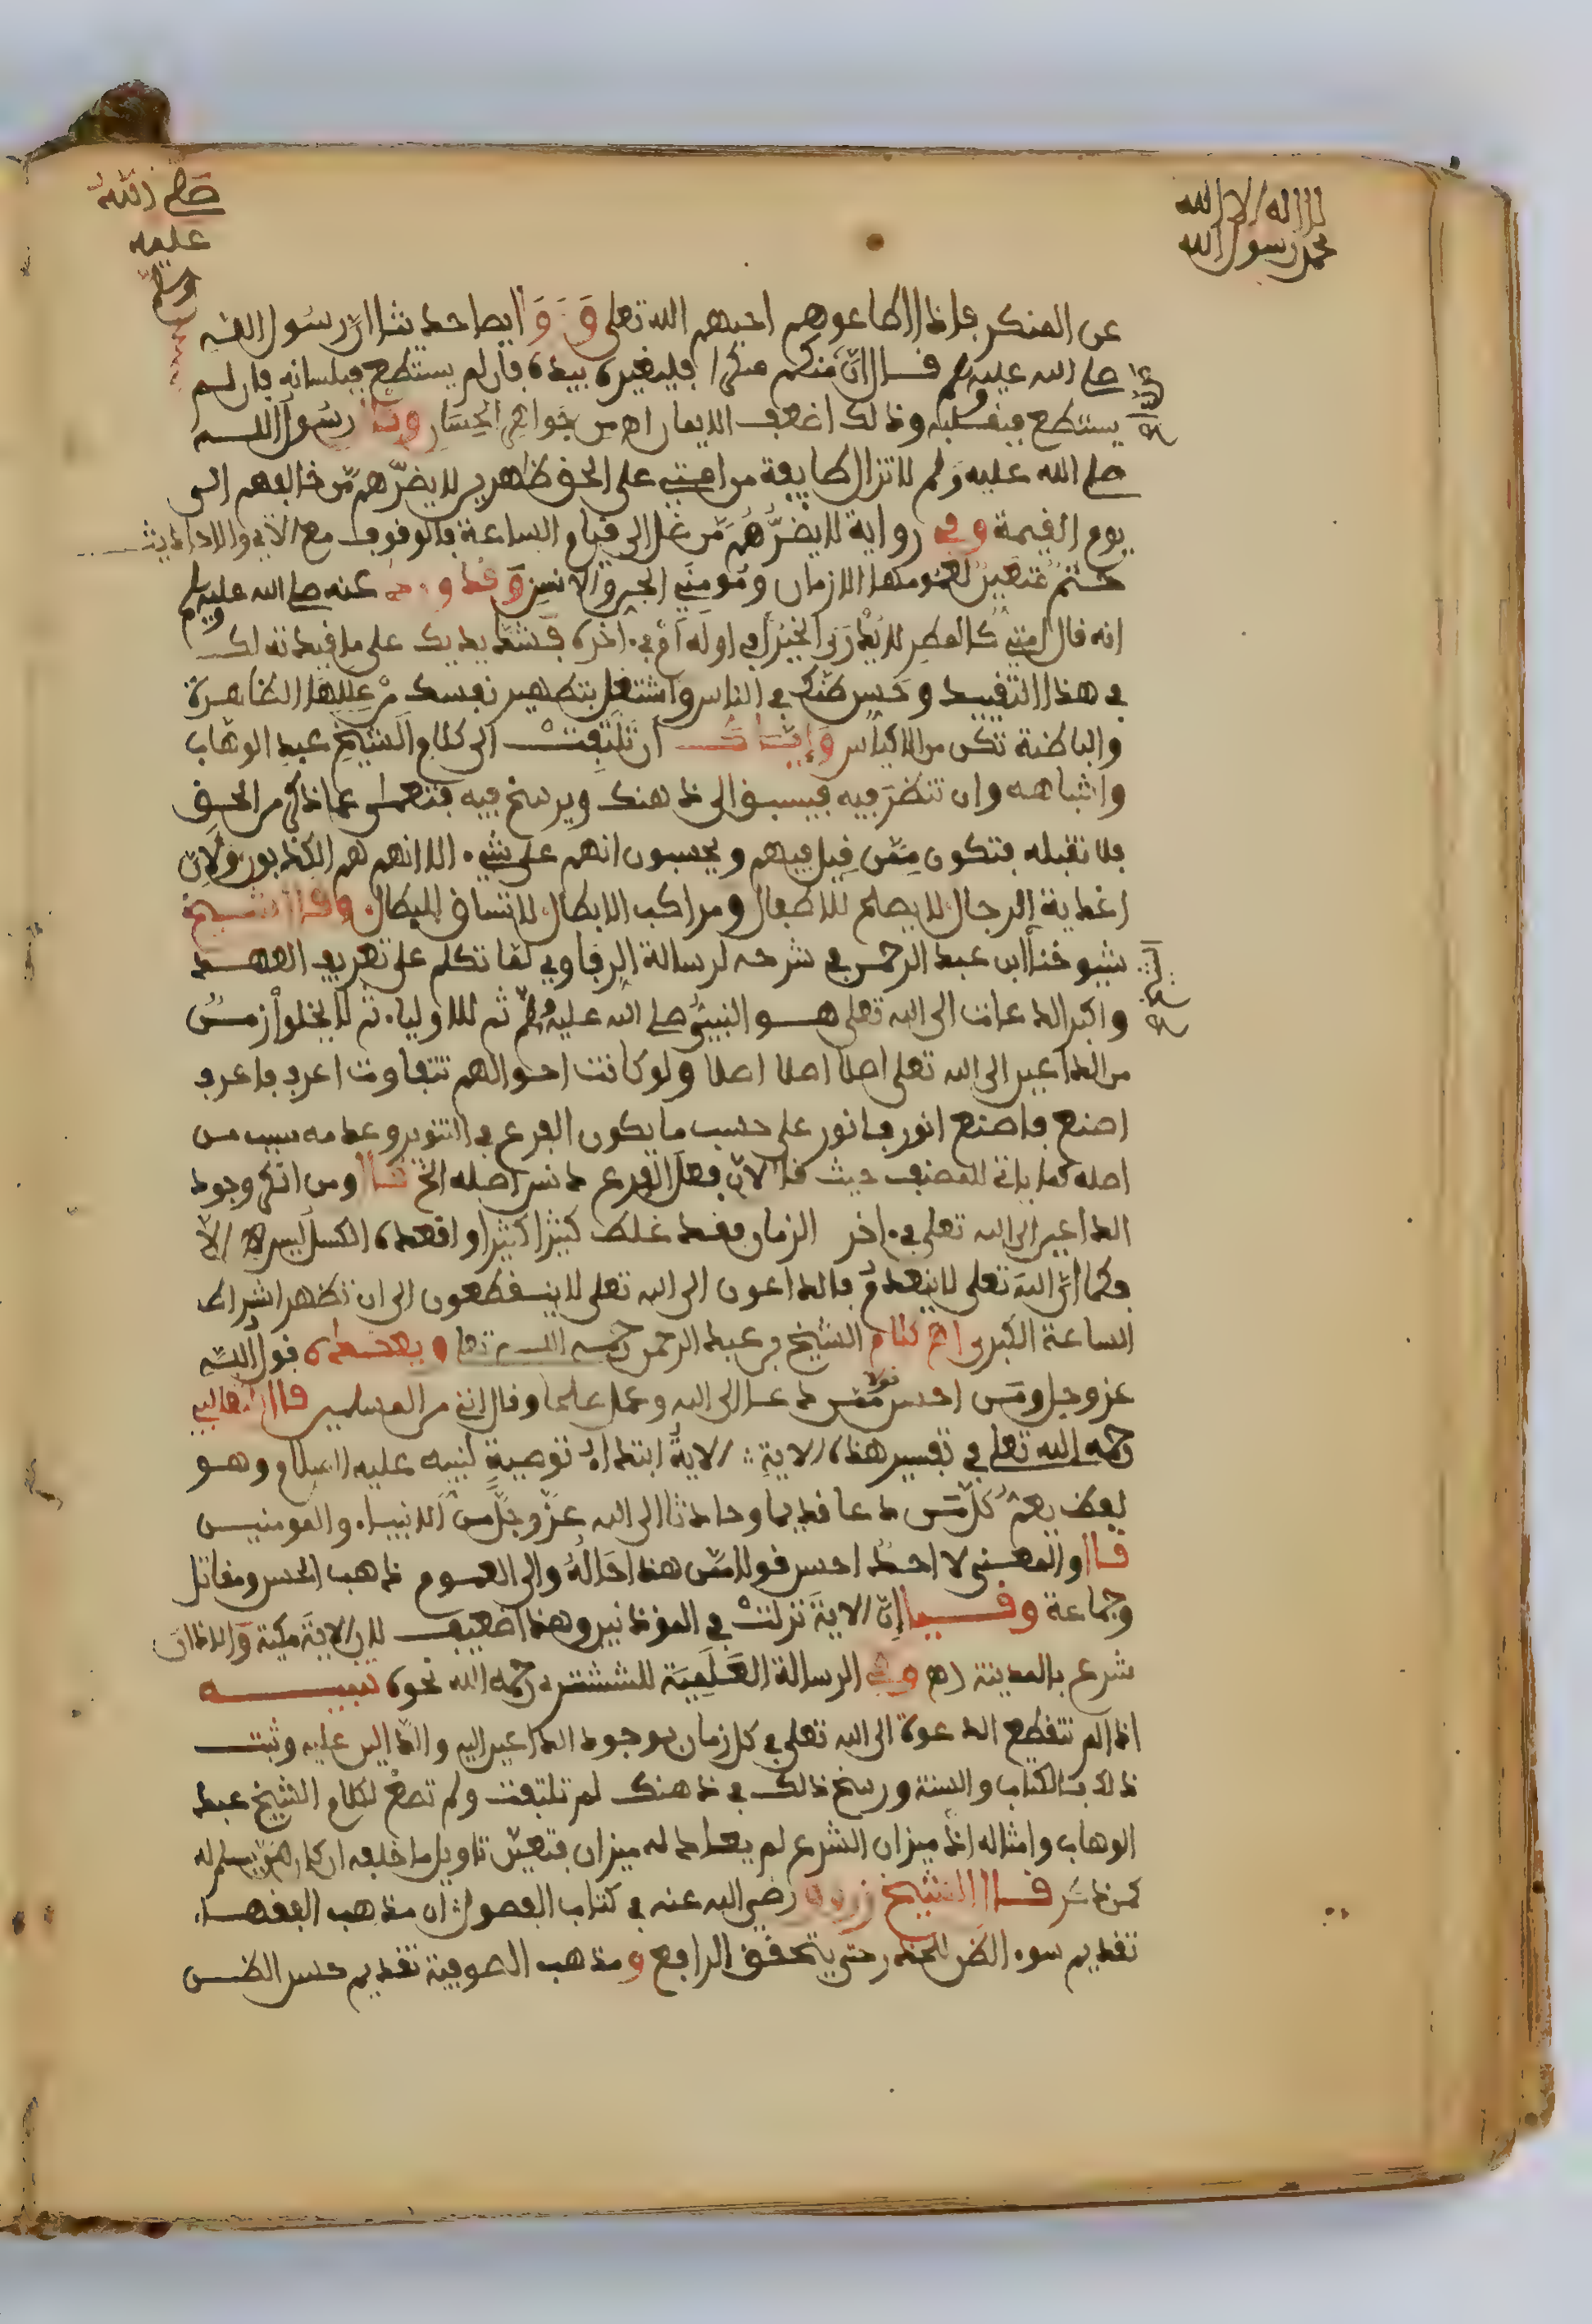 لا اله الا الله
محمد رسول الله
صلى الله
عليه
وسلم
عن المنكر فاذا اطاعوهم احبهم الله تعلى وورد ايضا حديثا ان رسول الله
صلى الله عليه وسلم قال ان منكم منكرا فليغيره بيده فان لم يستطع فبلسانه فان لم
يستطع فبقلبه وذالك اضعف الايمان اهـ من جواهر الحسان وقال رسول الله
صلى الله عليه وسلم لا تزال طايفة من امتي على الحق ظاهرين لا يضرهم من خالفهم الى
يوم القيمة وفي رواية لا يضرهم من خذل الى قيام الساعة فالوقوف مع الآي والاحاديث
حتم متعين لعمومها الازمان ومومني الجن والانس وقد ورد عنه صلى الله عليه وسلم
انه قال امتي كالمطر لا يدرى الخير في اوله ام في آخره فشد يديك على ما قيدته لك
في هذا التقييد وحسن ظنك في الناس واشتغل بتطهير نفسك من عللها الظاهرة
والباطنة تكن من الاكياس وإياك أن تلتفت الى كلام الشيخ عبد الوهاب
واشباهه وان تنظر فيه فيسبق الى ذهنك ويرسخ فيه فتعمى عما ذكر من الحق
فلا تقبله فتكون ممن قيل فيهم ويحسبون انهم على شيء الا انهم هم الكاذبون ولان
اغذية الرجال لا يصلح للاطفال ومراكب الابطال لا تساق للبطال وقال شيخ
شيوخنا ابن عبد الرحمن في شرحه لرسالة الرفاوي لما تكلم على تعريف العهد
واكبر الدعات الى الله تعلى هو النبيء صلى الله عليه وسلم ثم للاولياء ثم لا يخلوا زمن
من الداعين الى الله تعلى اصلا اصلا اصلا ولو كانت احوالهم تتفاوت اعرف فاعرف
اصنع فاصنع انور فانور على حسب ما يكون الفرع في التنوير وعدمه بسبب من
اصله كما ياتي للمصنف حيث قال لان فعل الفرع من سر اصله الخ قال ومن انكر وجود
الداعين الى الله تعلى في اخر الزمان فقد غلط كثيرا كثيرا واقعده الكسل ليس الا
وكما ان الله تعلى لا ينعدم فالداعون الى الله تعلى لا ينقطعون الى ان تظهر اشراط
الساعة الكبرى اهـ كلام الشيخ بن عبد الرحمن رحمه الله تعلى ويعضده قول الله
عز وجل ومن احسن قولا ممن دعا الى الله وعمل صلحا وقال انني من المسلمين قال الثعالبي
رحمه الله تعلى في تفسير هذه الاية الاية ابتداء توصية لنبيه عليه السلام وهو
لفظ يعم كل من دعا قديما وحديثا الى الله عز وجل من الانبياء والمومنين
قال والمعنى لا احد احسن قولا ممن هذا حاله والى العموم ذهب الحسن ومقاتل
وجماعة وقيل إن الاية نزلت في الموذنين وهذا ضعيف لان الاية مكية والاذان
شرع بالمدينة اهـ وفي الرسالة العلمية للششتري رحمه الله نحوه تنبيه
اذا لم تنقطع الدعوة الى الله تعلى في كل زمان بوجود الداعين اليه والدالين عليه وثبت
ذلك بالكتاب والسنة ورسخ ذالك في ذهنك لم تلتفت ولم تصغ لكلام الشيخ عبد
الوهاب وامثاله اذ ميزان الشرع لم يعادله ميزان فتعين تاويل ما خلفه ان كان ممن يسلم له
قال الشيخ زروق رضي الله عنه في كتاب الفصول ان مذهب الفقهاء
تقديم سوء الظن للحذر حتى يتحقق الرافع ومذهب الصوفية تقديم حسن الظن